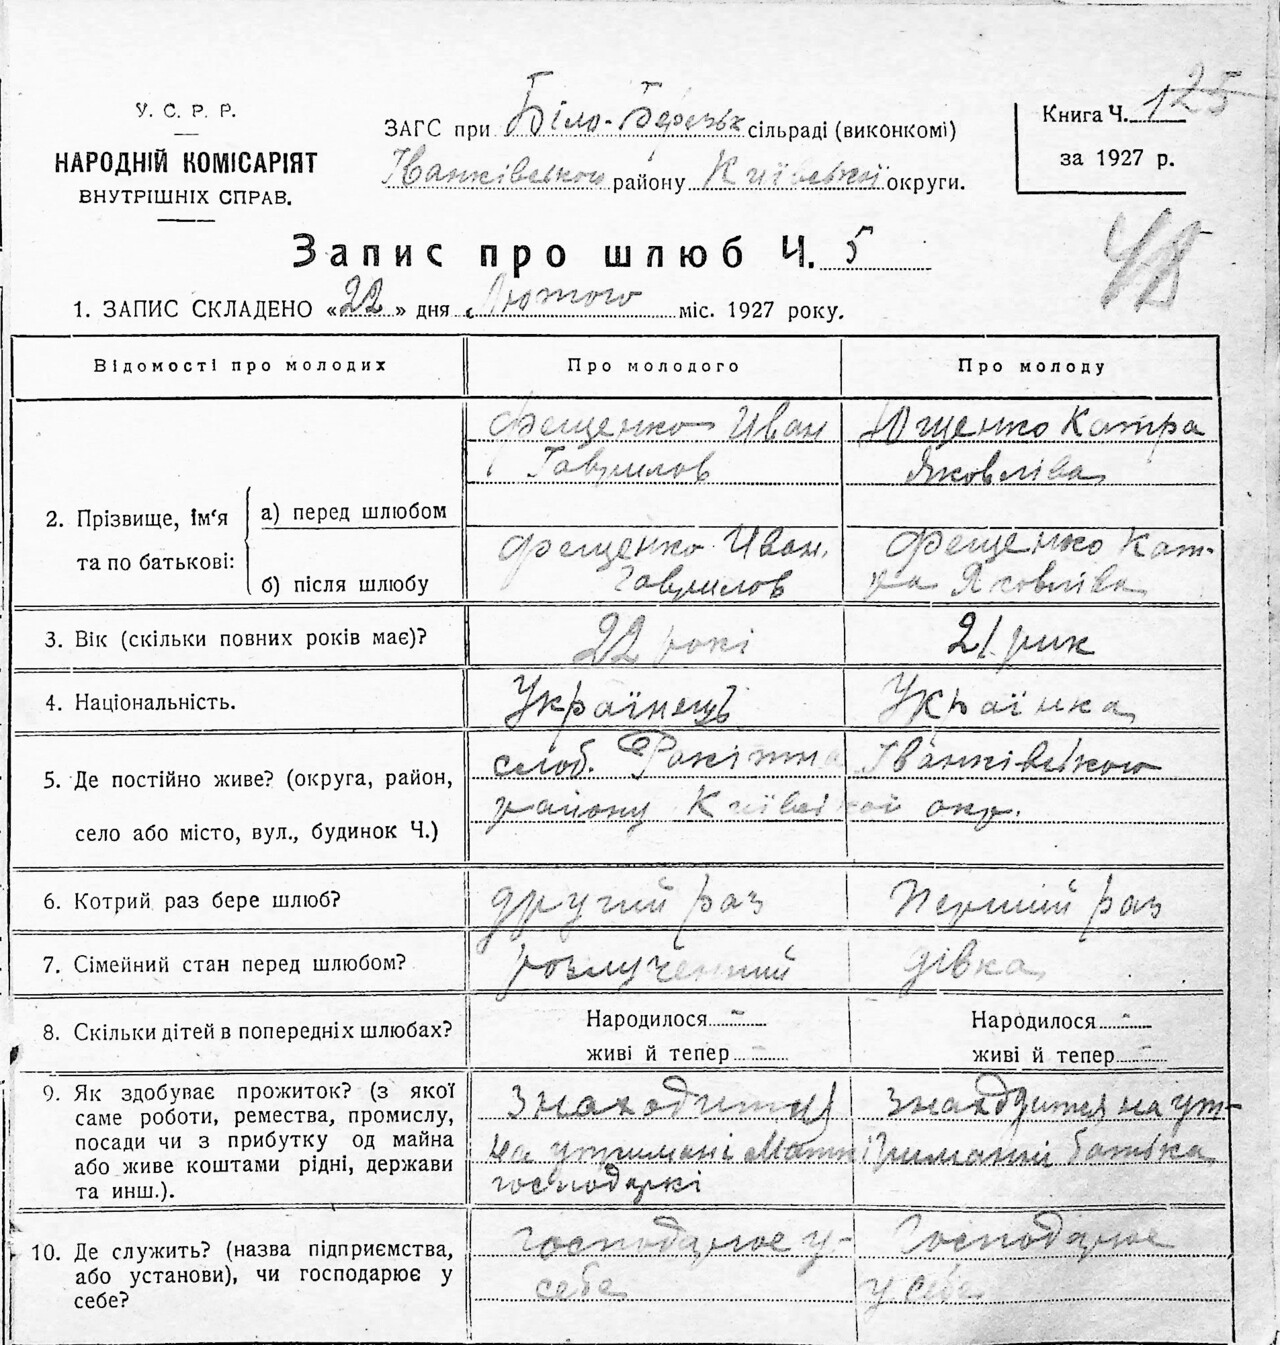 У. С. Р. Р.
НАРОДНІЙ КОМІСАРІЯТ
ВНУТРІШНІХ СПРАВ.
ЗАГС при Біло-Березьк сільраді (виконкомі)
Іванківського району Київської округи.
Книга Ч. 125
за 1927 р.
Запис про шлюб Ч. 5
1. ЗАПИС СКЛАДЕНО «22» дня Лютого міс. 1927 року.
Відомості про молодих
Про молодого
Про молоду
2. Прізвище, ім‘я та по батькові:
а) перед шлюбом
Фещенко Иван
Гаврилов
Ющенко Катра
Яковліва
б) після шлюбу
Фещенко Иван
Гаврилов
Фещенко Кат-
ра Яковліва
3. Вік (скільки повних років має)?
22 рокі
21 рик
4. Національність.
Українець
Українка
5. Де постійно живе? (округа, район,
село або місто, вул., будинок Ч.)
слоб. Ракітна Іванківського
району Київської окр.
6. Котрий раз бере шлюб?
другий раз
Перший раз
7. Сімейний стан перед шлюбом?
розлученний
дівка
8. Скільки дітей в попередніх шлюбах?
Народилося -
живі й тепер -
Народилося -
живі й тепер -
9. Як здобуває прожиток? (з якої
саме роботи, ремества, промислу,
посади чи з прибутку од майна
або живе коштами рідні, держави
та инш.).
Знаходится
на утримані
господаркі
Знаходится на ут-
риманні батька
10. Де служить? (назва підприємства,
або установи), чи господарює у
себе?
Господарює у
себе
Господарює
у себе